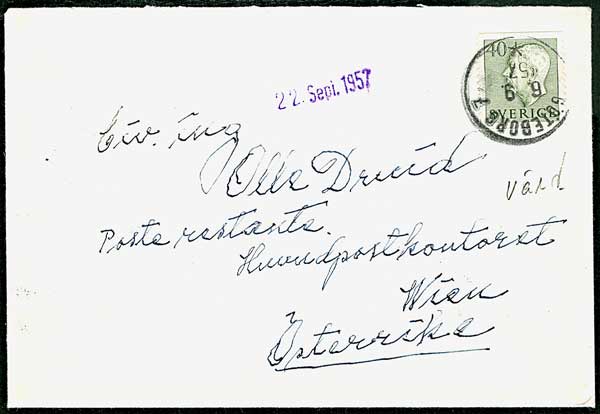 40
57
6 9
SVERIGE
GÖTEBORG 7
22. Sepi. 1957
Civ. ing
Olle Druid
vård
Poste restante.
Huvudpostkontoret
Wien
Österrike